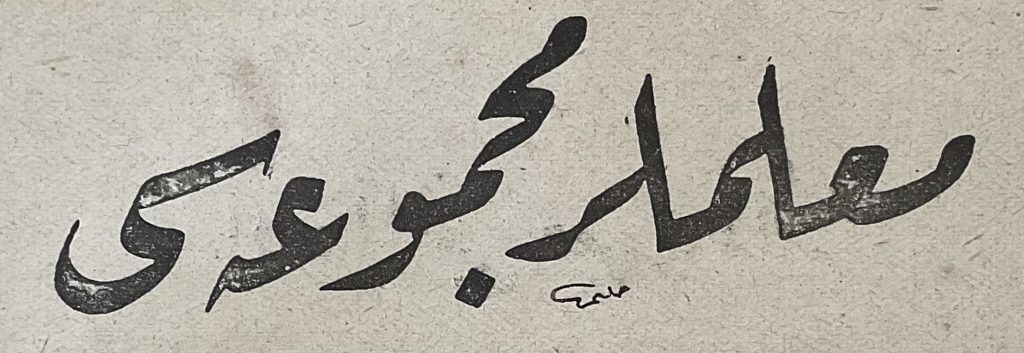 معلملر مجموعه‌سی